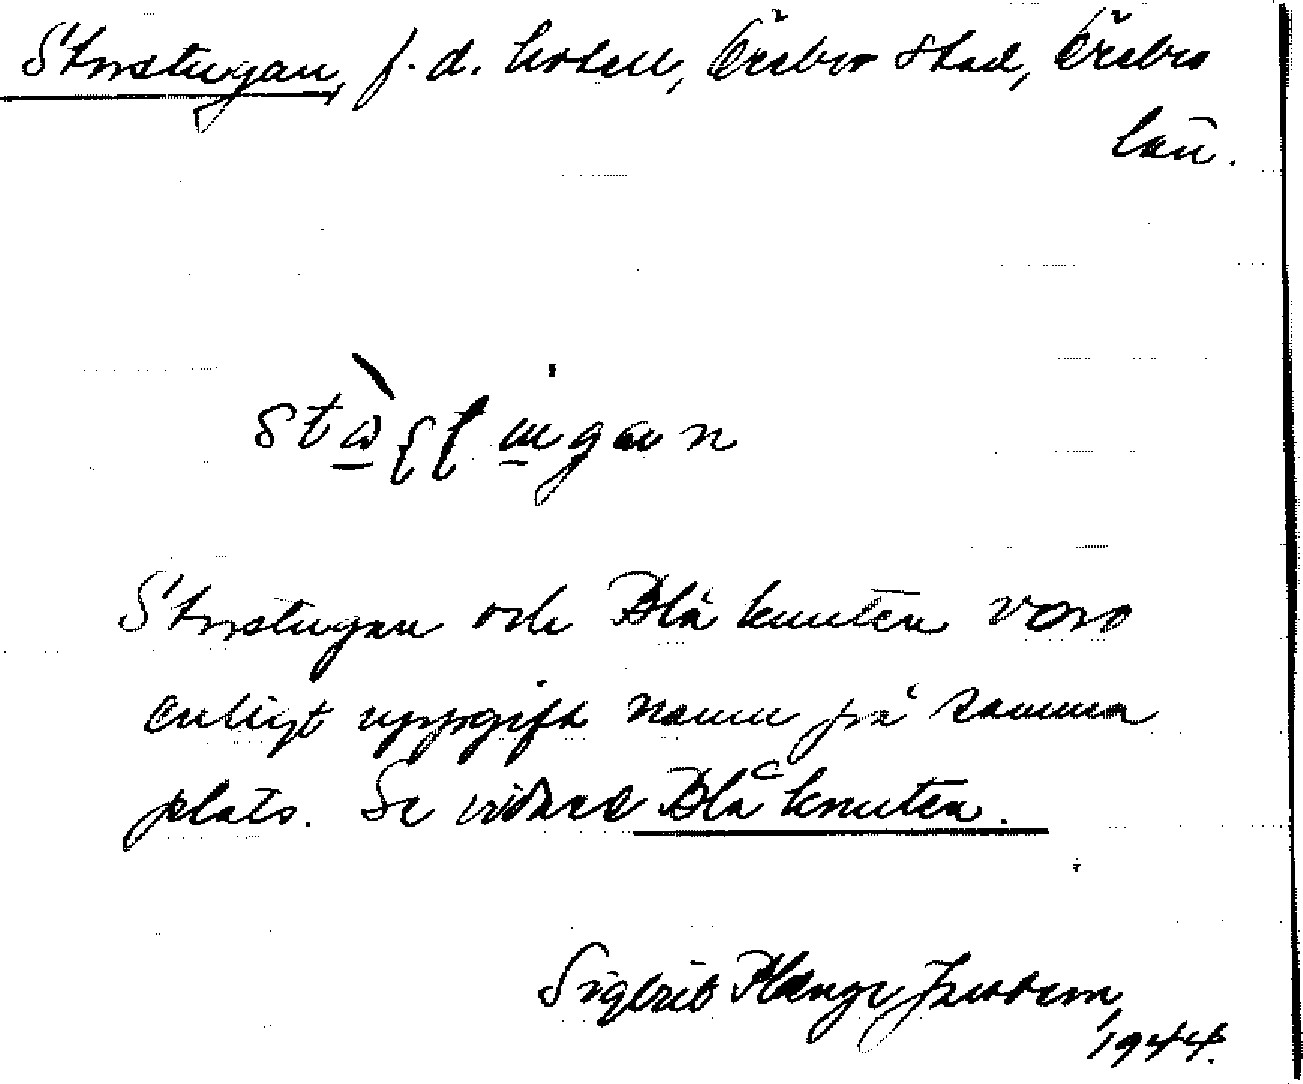 Storstugan, f. d. hotell, Örebro stad, Örebro
län.
Storstugan och Blå knuten voro
enligt uppgift namn på samma
plats. Se vidare Blå knuten.
Sigbrit Plænge Jacobson,
1944.